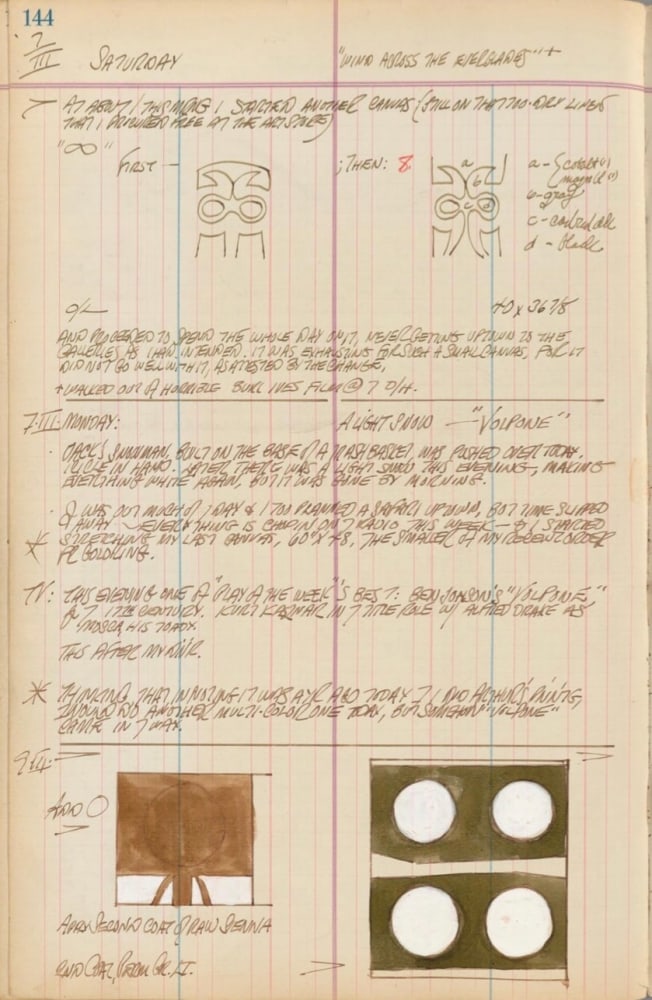 144
7
III SATURDAY "WIND ACROSS THE EVERGLADES" +
AT ABOUT 1 THIS MRNG I STARTED ANOTHER CANVAS (STILL ON THAT TOO-DRY LINEN
THAT I PROCURED FREE AT THE ART STORE)
"∞"
FIRST — ; THEN: 8
a
b
c d
a - {cobalt
b - gray
c - cad red
d - black
O/L 40 x 36 7/8
AND PROCEEDED TO SPEND THE WHOLE DAY ON IT, NEVER GETTING UPTOWN TO THE
GALLERIES AS I HAD INTENDED. IT WAS EXHAUSTING FOR SUCH A SMALL CANVAS, FOR IT
DID NOT GO WELL WITH IT, AS ATTESTED BY THE CHANGE,
+ WALKED OUT OF A HORRIBLE BURL IVES FILM @ 7
III MONDAY: A LIGHT SNOW — "VOLPONE"
JACK'S SNOWMAN, BUILT ON THE BASE OF A TRASH BASKET, WAS PUSHED OVER TODAY.
ICICLE IN HAND. LATER THERE WAS A LIGHT SNOW THIS EVENING, MAKING
EVERYTHING WHITE AGAIN, BUT IT WAS GONE BY MORNING.
WAS OUT MUCH OF DAY & I TOO PLANNED A SAFARI UPTOWN, BUT TIME SLIPPED
AWAY — EVERYTHING IS CHOPIN ON RADIO THIS WEEK — & I STARTED
* STRETCHING MY LAST CANVAS, 60" X 48, THE SMALLER OF MY RECENT ORDER
FR GOLDRING.
TV: THIS EVENING ONE OF "PLAY OF THE WEEK"'S BEST: BEN JONSON'S "VOLPONE"
17TH CENTURY. KURT KASZNAR IN TITLE ROLE W/ ALFRED DRAKE AS
MOSCA, HIS TOADY.
THIS AFTER MY
* THINKING THAT IN NOTING IT WAS A YR AGO TODAY I DID ARTHUR'S PAINTG,
I WOULD DO ANOTHER MULTI-COLOR ONE TODAY, BUT SOMEHOW "VOLPONE"
CAME IN WAY.
9.III
ADD O
APPLY SECOND COAT OF RAW SIENNA
2ND COAT, PERM. GR. LT.